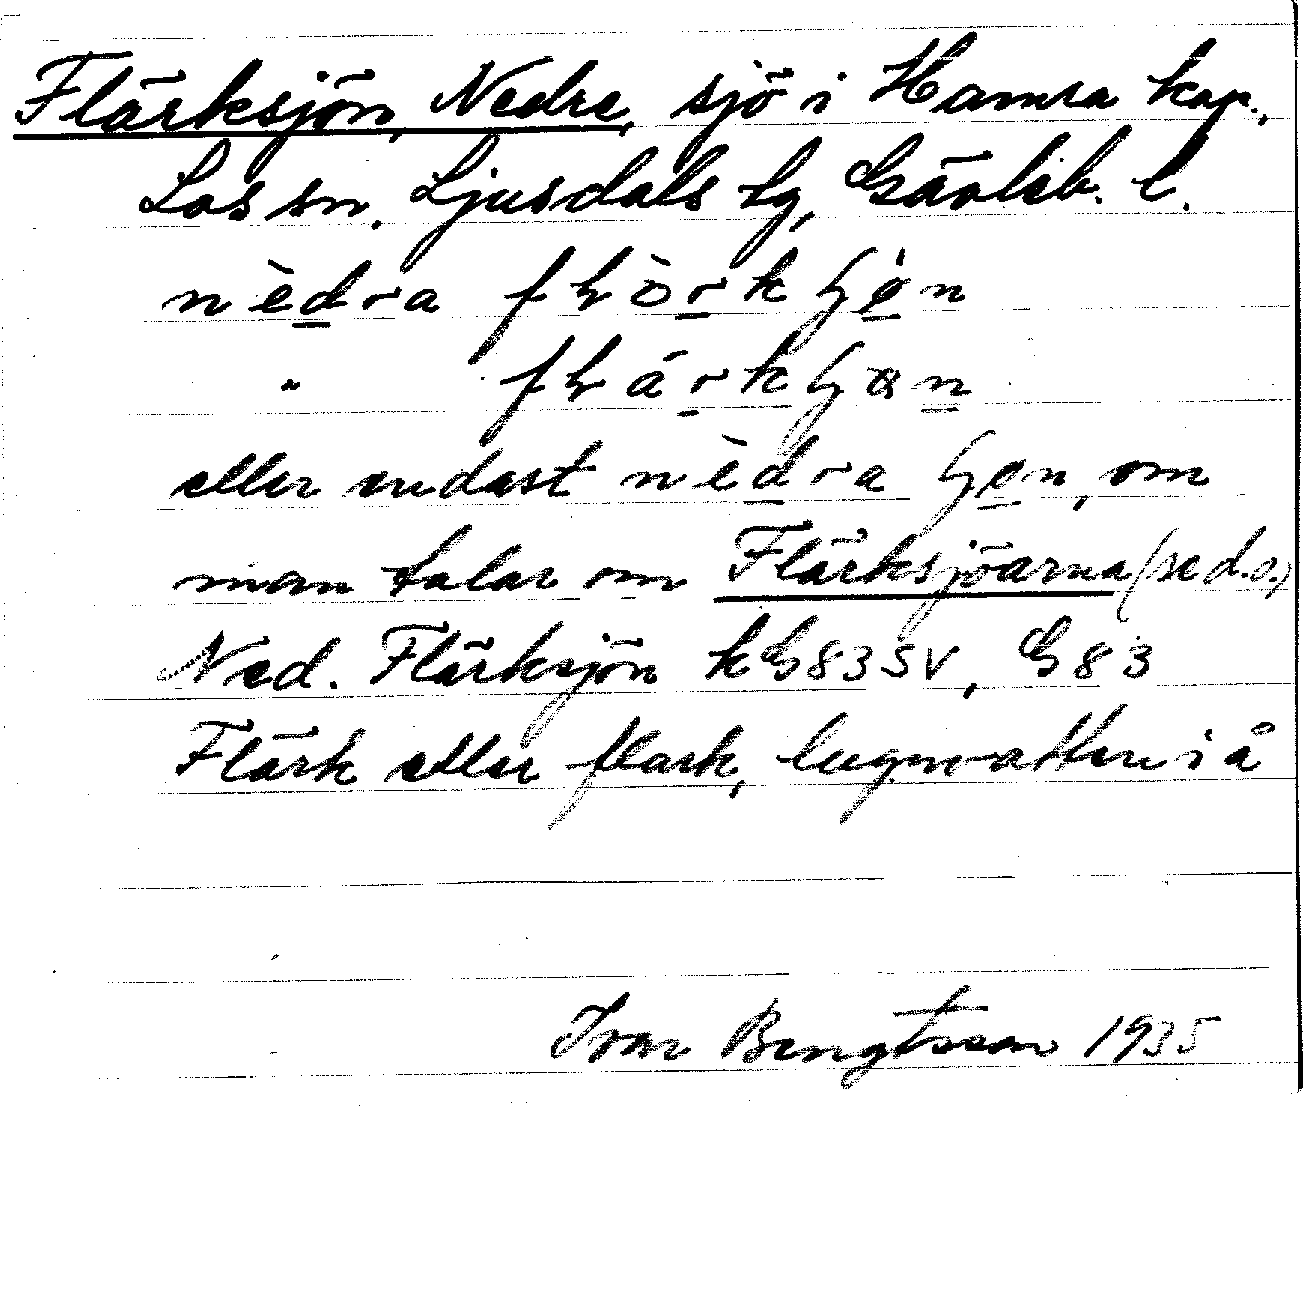 Flärksjön, Nedre, sjö i Hamra kap.,
Los sn. Ljusdals tg, Gävleb. l.
nèdra
"
eller endast nèdra, om
man talar om Flärksjöarna (se d.o.)
Ned. Flärksjön kG83SV, G83
Flärk eller flark, lugnvatten i å
Ivar Bengtsson 1935